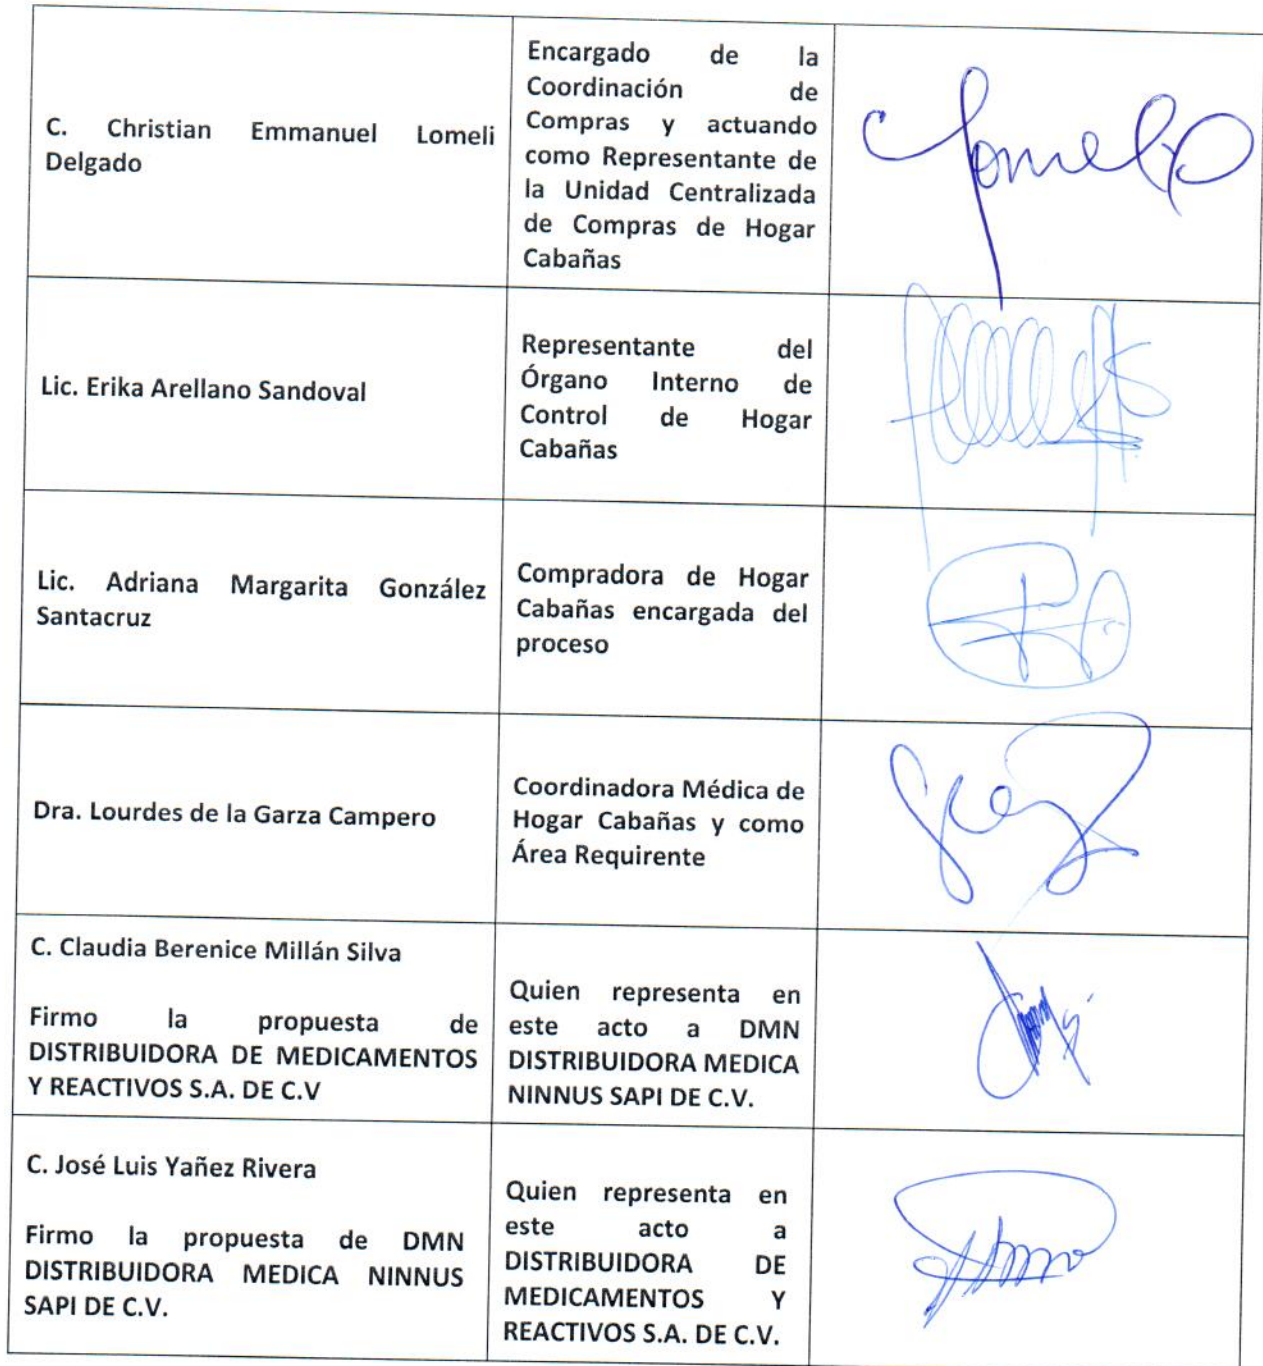 C. Christian Emmanuel Lomeli
Delgado
Encargado de la
Coordinación de
Compras y actuando
como Representante de
la Unidad Centralizada
de Compras de Hogar
Cabañas
Lic. Erika Arellano Sandoval
Representante del
Órgano Interno de
Control de Hogar
Cabañas
Lic. Adriana Margarita González
Santacruz
Compradora de Hogar
Cabañas encargada del
proceso
Dra. Lourdes de la Garza Campero
Coordinadora Médica de
Hogar Cabañas y como
Área Requirente
C. Claudia Berenice Millán Silva
Firmo la propuesta de
DISTRIBUIDORA DE MEDICAMENTOS
Y REACTIVOS S.A. DE C.V
Quien representa en
este acto a DMN
DISTRIBUIDORA MEDICA
NINNUS SAPI DE C.V.
C. José Luis Yañez Rivera
Firmo la propuesta de DMN
DISTRIBUIDORA MEDICA NINNUS
SAPI DE C.V.
Quien representa en
este acto a
DISTRIBUIDORA DE
MEDICAMENTOS Y
REACTIVOS S.A. DE C.V.